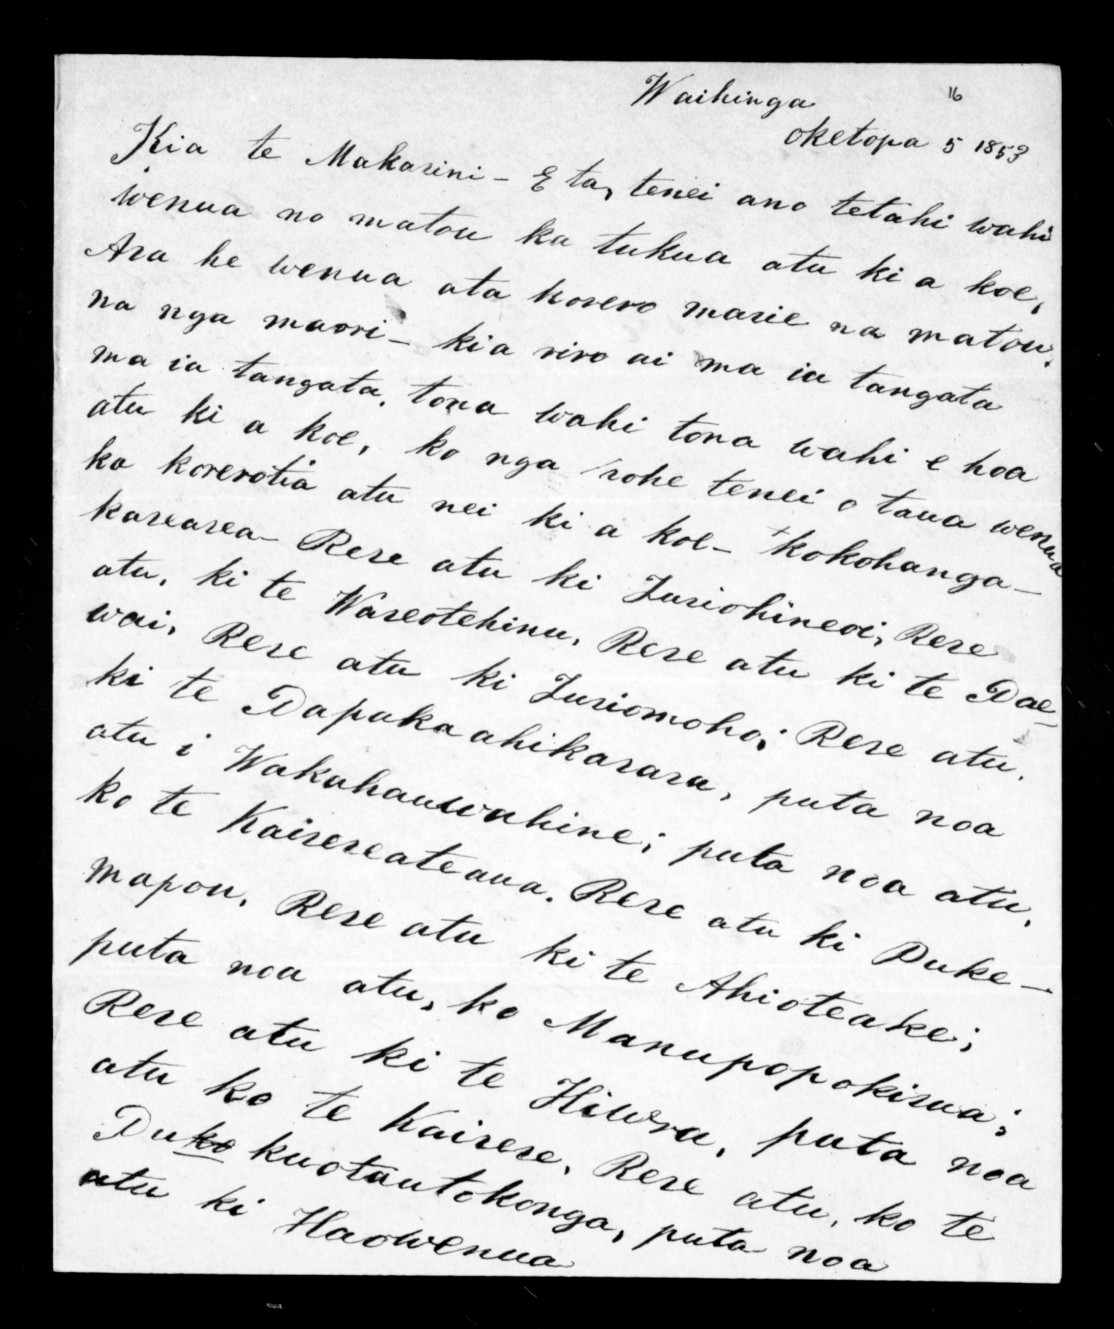 Waihinga
16
oketopa 5 1853
Kia te Makarini - E ta, tenei ano tetahi wahi
wenua no matou ka tukua atu ki a koe,
Ara he wenua ata korero marie na matou.
na nga maori - kia riro ai ma ia tangata
ma ia tangata. tona wahi tona wahi e hoa
atu ki a koe, ko nga rohe tenei o taua wenua
ka korerotia atu nei ki a koe - + kokohanga -
karearea - Rere atu ki Turiohineoi, Rere
atu, ki te Wareotehinu. Rere atu ki te Pae-
wai, Rere atu ki Turiomoho; Rere atu.
ki te Papakaahikarara, puta noa
atu i Wakahauwahine; puta noa atu,
ko te Kairereateaua. Rere atu ki Puke-
mapou, Rere atu ki te Ahioteake;
puta noa atu, ko Manupopokirua;
Rere atu ki te Hiwra, puta noa
atu ko te Kairere, Rere atu, ko te
Puko kuotautokonga, puta noa
atu ki Haowenua